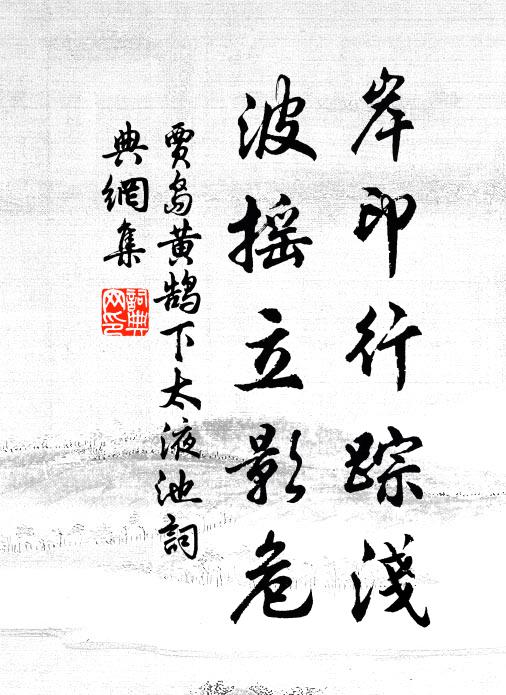 岸印行踪淺
波摇立影危
賈島黄鵠下太液池詞
典網集
詞典网印